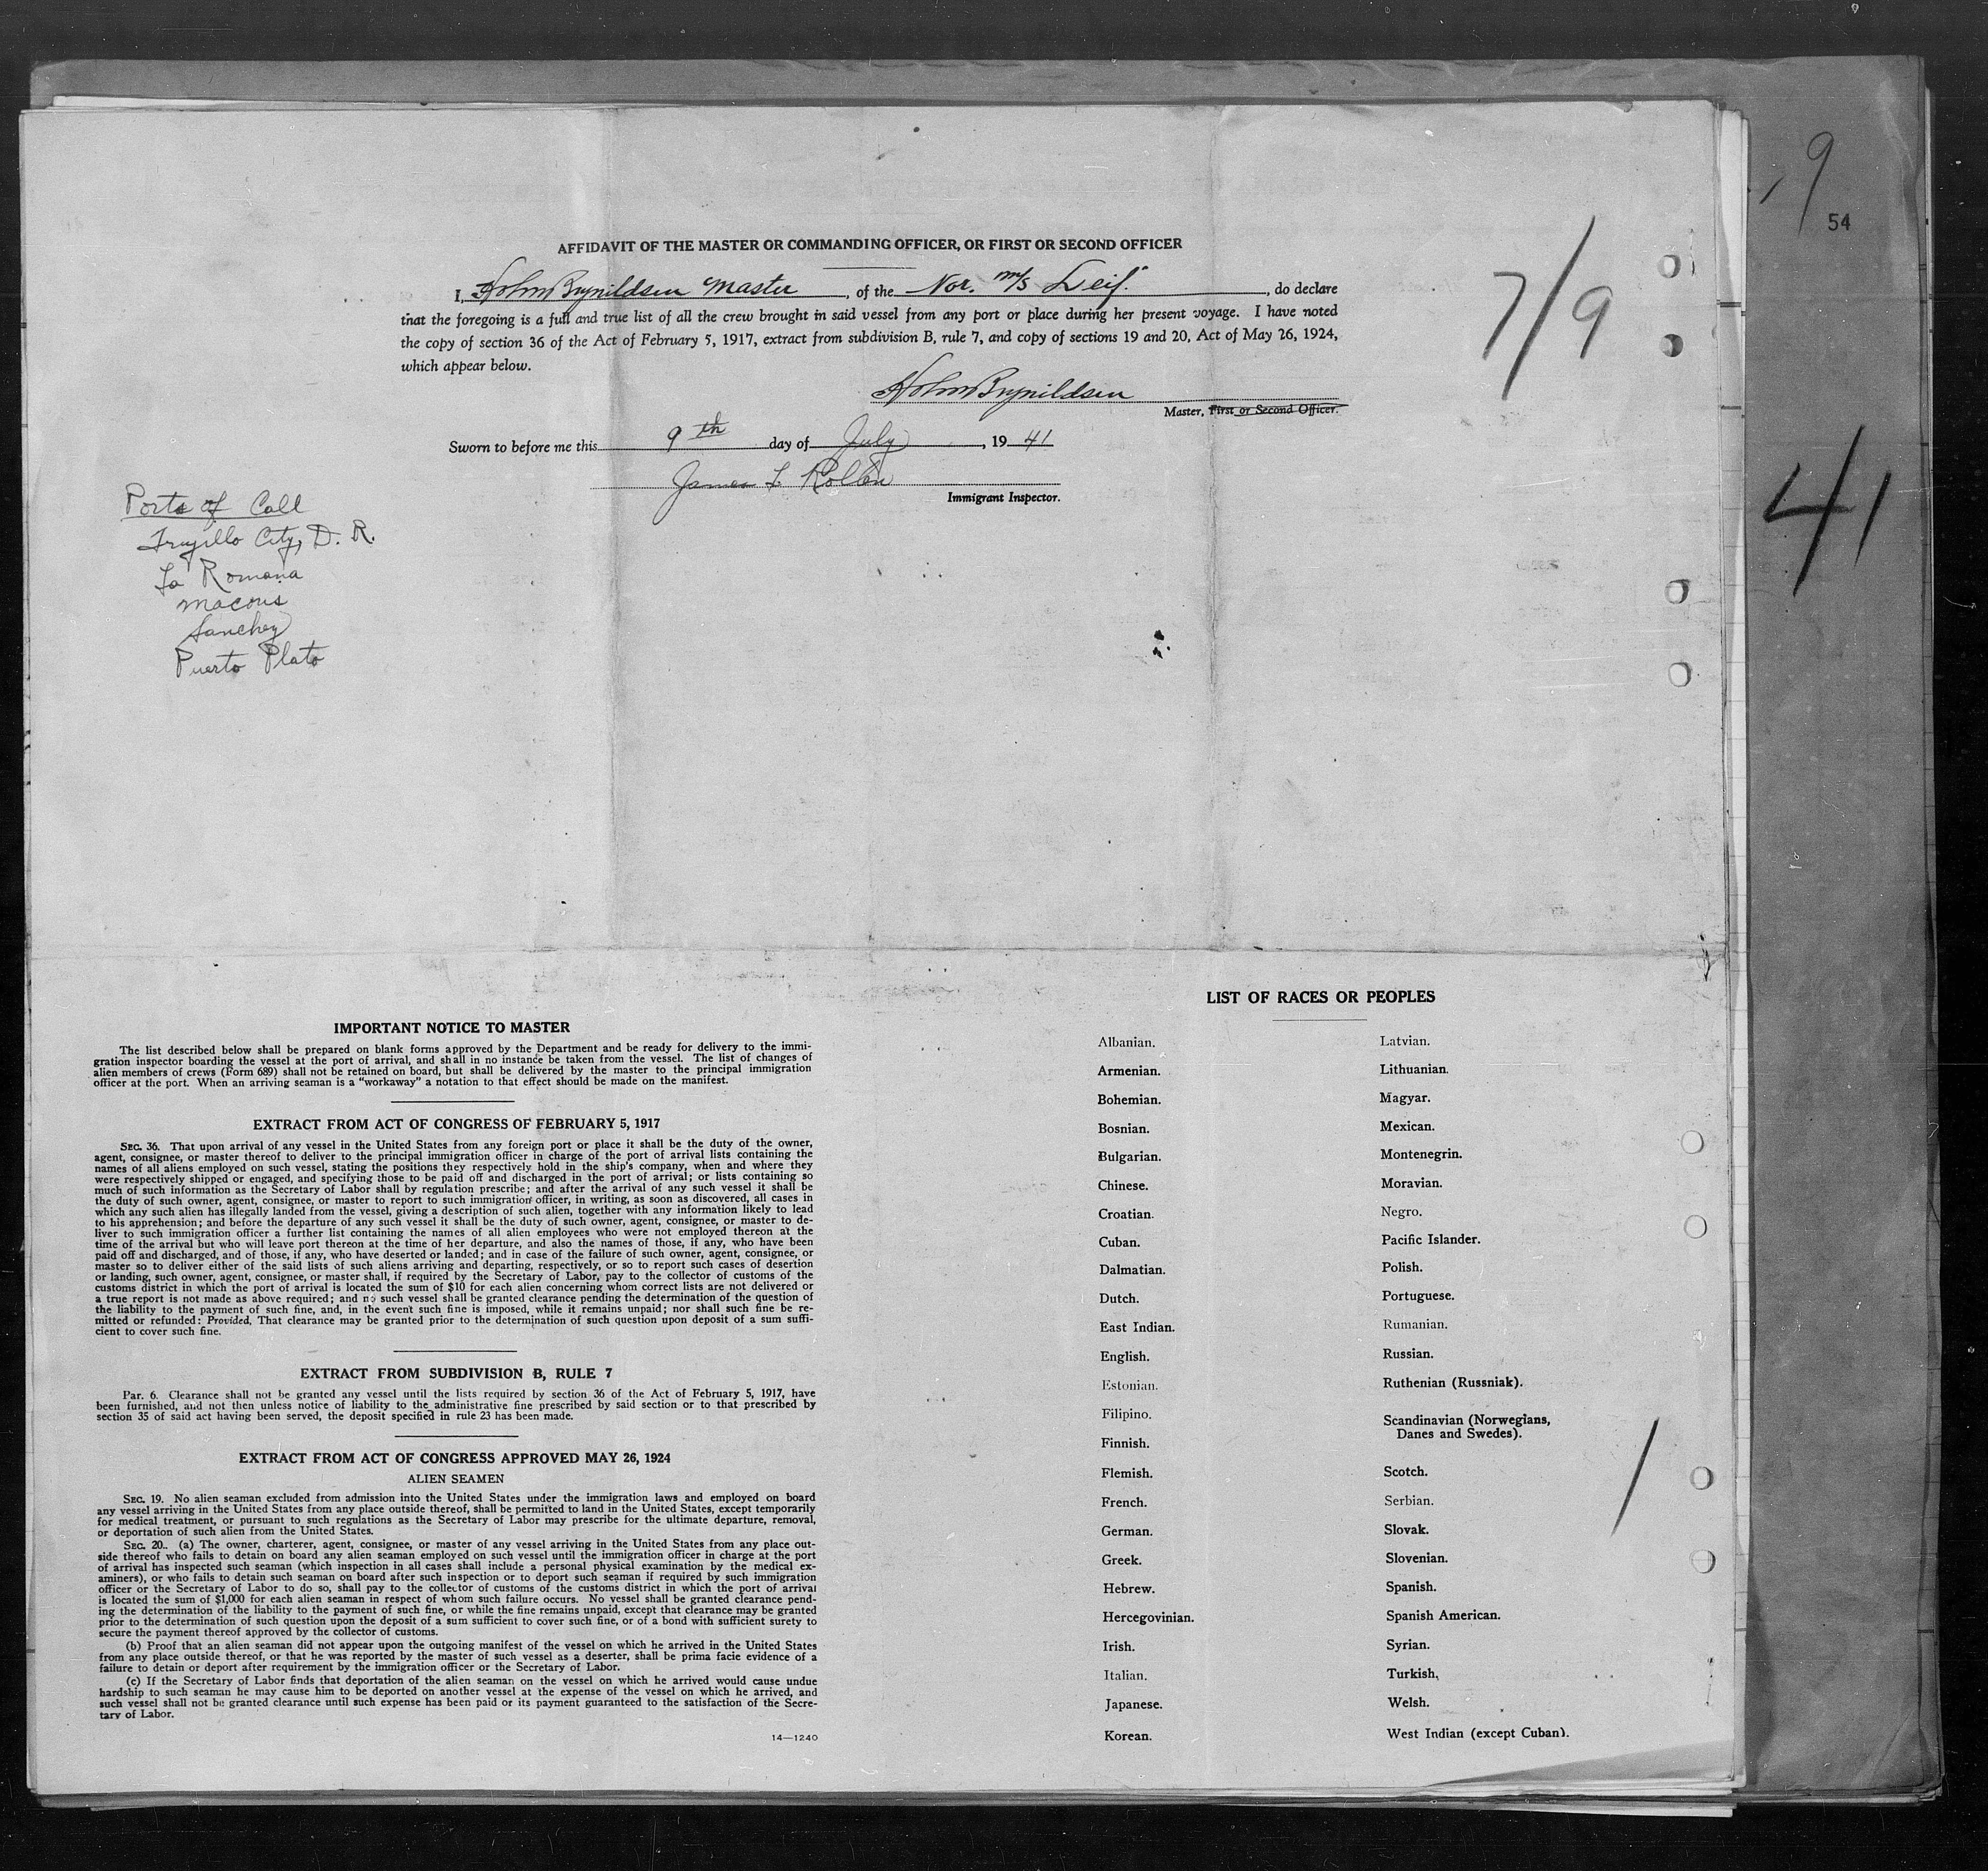 9
54
AFFIDAVIT OF THE MASTER OR COMMANDING OFFICER, OR FIRST OR SECOND OFFICER
I, Holm Brynildsen Master, of the Nor. m/s Leif., do declare
that the foregoing is a full and true list of all the crew brought in said vessel from any port or place during her present voyage. I have noted
the copy of section 36 of the Act of February 5, 1917, extract from subdivision B, rule 7, and copy of sections 19 and 20, Act of May 26, 1924,
which appear below.
7/9
Holm Brynildsen
Master, First or Second Officer.
Sworn to before me this 9th day of July, 19 41
James L.
Immigrant Inspector.
41
Ports of Call
Trujillo City, D. R.
La Romana
Macoris
Sanchez
Puerto Plato
IMPORTANT NOTICE TO MASTER
The list described below shall be prepared on blank forms approved by the Department and be ready for delivery to the immi-
gration inspector boarding the vessel at the port of arrival, and shall in no instance be taken from the vessel. The list of changes of
alien members of crews (Form 689) shall not be retained on board, but shall be delivered by the master to the principal immigration
officer at the port. When an arriving seaman is a "workaway" a notation to that effect should be made on the manifest.
EXTRACT FROM ACT OF CONGRESS OF FEBRUARY 5, 1917
SEC. 36. That upon arrival of any vessel in the United States from any foreign port or place it shall be the duty of the owner,
agent, consignee, or master thereof to deliver to the principal immigration officer in charge of the port of arrival lists containing the
names of all aliens employed on such vessel, stating the positions they respectively hold in the ship's company, when and where they
were respectively shipped or engaged, and specifying those to be paid off and discharged in the port of arrival; or lists containing so
much of such information as the Secretary of Labor shall by regulation prescribe; and after the arrival of any such vessel it shall be
the duty of such owner, agent, consignee, or master to report to such immigration officer, in writing, as soon as discovered, all cases in
which any such alien has illegally landed from the vessel, giving a description of such alien, together with any information likely to lead
to his apprehension; and before the departure of any such vessel it shall be the duty of such owner, agent, consignee, or master to de-
liver to such immigration officer a further list containing the names of all alien employees who were not employed thereon at the
time of the arrival but who will leave port thereon at the time of her departure, and also the names of those, if any, who have been
paid off and discharged, and of those, if any, who have deserted or landed; and in case of the failure of such owner, agent, consignee, or
master so to deliver either of the said lists of such aliens arriving and departing, respectively, or so to report such cases of desertion
or landing, such owner, agent, consignee, or master shall, if required by the Secretary of Labor, pay to the collector of customs of the
customs district in which the port of arrival is located the sum of $10 for each alien concerning whom correct lists are not delivered or
a true report is not made as above required; and no such vessel shall be granted clearance pending the determination of the question of
the liability to the payment of such fine, and, in the event such fine is imposed, while it remains unpaid; nor shall such fine be re-
mitted or refunded: Provided, That clearance may be granted prior to the determination of such question upon deposit of a sum suffi-
cient to cover such fine.
EXTRACT FROM SUBDIVISION B, RULE 7
Par. 6. Clearance shall not be granted any vessel until the lists required by section 36 of the Act of February 5, 1917, have
been furnished, and not then unless notice of liability to the administrative fine prescribed by said section or to that prescribed by
section 35 of said act having been served, the deposit specified in rule 23 has been made.
EXTRACT FROM ACT OF CONGRESS APPROVED MAY 26, 1924
ALIEN SEAMEN
SEC. 19. No alien seaman excluded from admission into the United States under the immigration laws and employed on board
any vessel arriving in the United States from any place outside thereof, shall be permitted to land in the United States, except temporarily
for medical treatment, or pursuant to such regulations as the Secretary of Labor may prescribe for the ultimate departure, removal,
or deportation of such alien from the United States.
SEC. 20. (a) The owner, charterer, agent, consignee, or master of any vessel arriving in the United States from any place out-
side thereof who fails to detain on board any alien seaman employed on such vessel until the immigration officer in charge at the port
of arrival has inspected such seaman (which inspection in all cases shall include a personal physical examination by the medical ex-
aminers), or who fails to detain such seaman on board after such inspection or to deport such seaman if required by such immigration
officer or the Secretary of Labor to do so, shall pay to the collector of customs of the customs district in which the port of arrival
is located the sum of $1,000 for each alien seaman in respect of whom such failure occurs. No vessel shall be granted clearance pend-
ing the determination of the liability to the payment of such fine, or while the fine remains unpaid, except that clearance may be granted
prior to the determination of such question upon the deposit of a sum sufficient to cover such fine, or of a bond with sufficient surety to
secure the payment thereof approved by the collector of customs.
(b) Proof that an alien seaman did not appear upon the outgoing manifest of the vessel on which he arrived in the United States
from any place outside thereof, or that he was reported by the master of such vessel as a deserter, shall be prima facie evidence of a
failure to detain or deport after requirement by the immigration officer or the Secretary of Labor.
(c) If the Secretary of Labor finds that deportation of the alien seaman on the vessel on which he arrived would cause undue
hardship to such seaman he may cause him to be deported on another vessel at the expense of the vessel on which he arrived, and
such vessel shall not be granted clearance until such expense has been paid or its payment guaranteed to the satisfaction of the Secre-
tary of Labor.
14—1240
LIST OF RACES OR PEOPLES
Albanian.
Armenian.
Bohemian.
Bosnian.
Bulgarian.
Chinese.
Croatian.
Cuban.
Dalmatian.
Dutch.
East Indian.
English.
Estonian.
Filipino.
Finnish.
Flemish.
French.
German.
Greek.
Hebrew.
Hercegovinian.
Irish.
Italian.
Japanese.
Korean.
Latvian.
Lithuanian.
Magyar.
Mexican.
Montenegrin.
Moravian.
Negro.
Pacific Islander.
Polish.
Portuguese.
Rumanian.
Russian.
Ruthenian (Russniak).
Scandinavian (Norwegians,
Danes and Swedes).
Scotch.
Serbian.
Slovak.
Slovenian.
Spanish.
Spanish American.
Syrian.
Turkish.
Welsh.
West Indian (except Cuban).